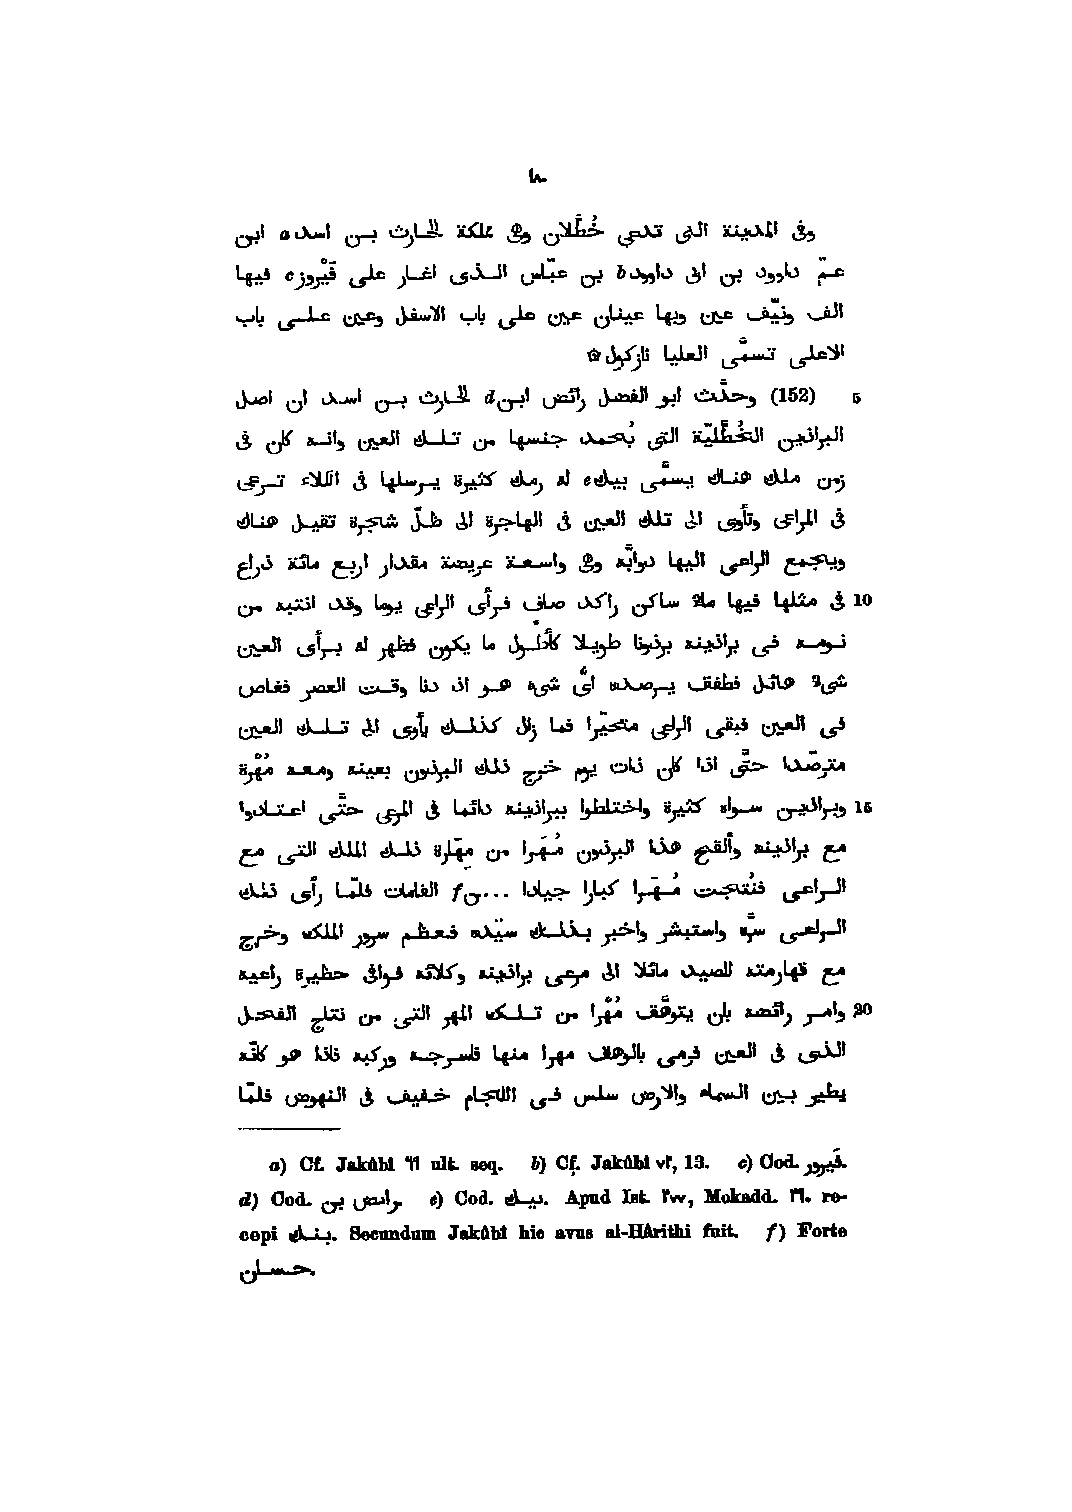 ١٨٠
وفى المدينة التى تدعى خُطَّلان وهى مملكة الحارث بن اسد a ابن
عمّ داوود بن ابى داوود b بن عبّاس الذى اغار على فَيْروز c فيها
الف ونيّف عين وبها عينان عين على باب الاسفل وعين على باب
الاعلى تسمَّى العليا نازكول ۞
5 (152) وحدَّث ابو الفضل رائض ابن d الحارث بن اسد ان اصل
البراذين الخُطَّليّة التى يُحمد جنسها من تلك العين وانه كان فى
زمن ملك هناك يسمَّى بيك e له رمك كثيرة يرسلها فى الكلاء ترعى
فى المراعى وتأوى الى تلك العين فى الهاجرة الى ظلّ شجرة تقيل هناك
ويجمع الراعى اليها دوابَّه وهى واسعة عريضة مقدار اربع مائة ذراع
10 فى مثلها فيها ماء ساكن راكد صاف فرأى الراعى يوما وقد انتبه من
نومه فى براذينه برذونا طويلا كأطْول ما يكون فظهر له برأى العين
شىء هائل فطفق يرصده اىُّ شىء هو اذ دنا وقت العصر فغاص
فى العين فبقى الراعى متحيّرا فما زال كذلك يأوى الى تلك العين
مترصّدا حتَّى اذا كان ذات يوم خرج ذلك البرذون بعينه ومعه مُهْرة
15 وبراذين سواه كثيرة واختلطوا ببراذينه دائما فى المرعى حتَّى اعتادوا
مع براذينه وألقح هذا البرذون مُهَرا من مِهَارة ذلك الملك التى مع
الراعى فنُتجت مُهَرا كبارا جيادا ...ن f القامات فلمّا رأى ذلك
الراعى سرَّه واستبشر واخبر بذلك سيّده فعظم سرور الملك وخرج
مع قهارمته للصيد مائلا الى مرعى براذينه وكلائه فوافى حظيرة راعيه
20 وامر رائضه بان يتوهَّف مُهْرا من تلك المهر التى من نتاج الفحل
الذى فى العين فرمى بالوهف مهرا منها فاسرجه وركبه فاذا هو كانّه
يطير بين السماء والارض سلس فى اللجام خفيف فى النهوض فلمّا
a) Cf. Jakûbî ٦٩ ult. seq. b) Cf. Jakûbî ٧٢, 13. c) Cod. فيرور.
d) Cod. رايض بن. e) Cod. نيك. Apud Ist. ٢٧٧, Mokadd. ٢٩. re-
cepi بنك. Secundum Jakûbî hic avus al-Hârithi fuit. f) Forte
حسان.